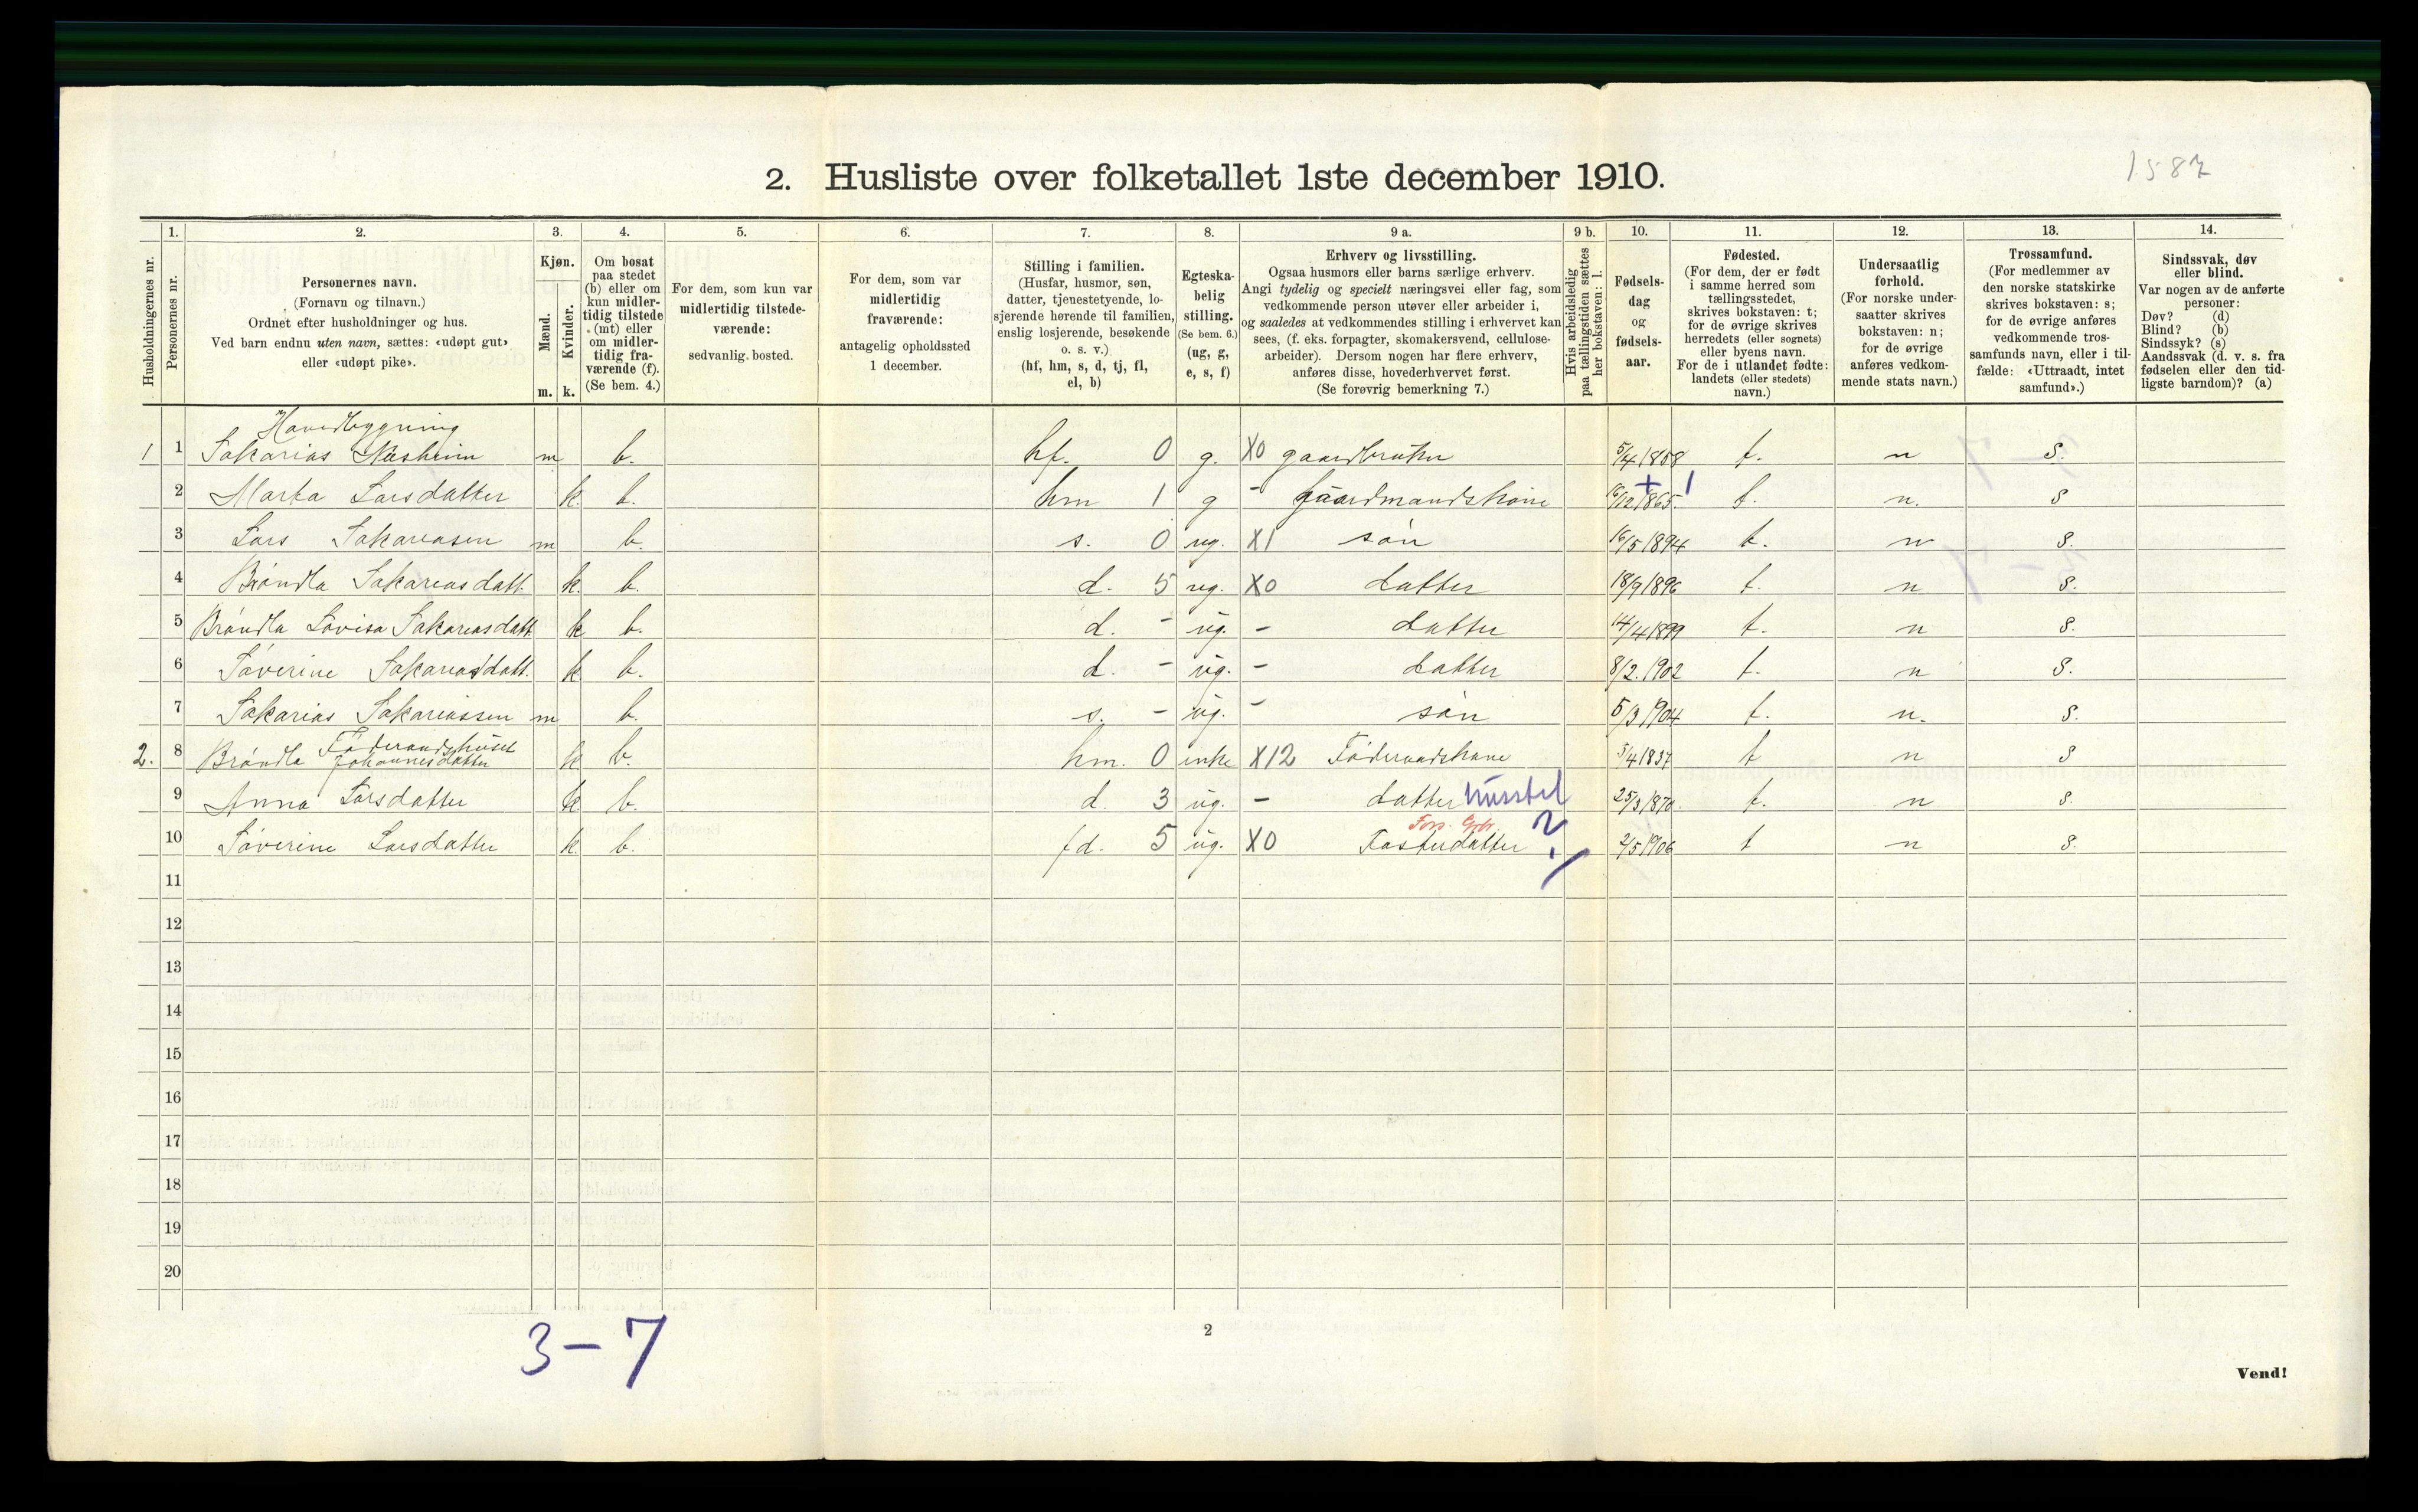 1587
2. Husliste over folketallet 1ste december 1910.
Husholdningernes nr.
1. Personernes nr.
2. Personernes navn.
(Fornavn og tilnavn.)
Ordnet efter husholdninger og hus.
Ved barn endnu uten navn, sættes: «udøpt gut»
eller «udøpt pike».
3. Kjøn.
Mænd. Kvinder.
m. k.
4. Om bosat
paa stedet
(b) eller om
kun midler-
tidig tilstede
(mt) eller
om midler-
tidig fra-
værende (f).
(Se bem. 4.)
5. For dem, som kun var
midlertidig tilstede-
værende:
sedvanlig bosted.
6. For dem, som var
midlertidig
fraværende:
antagelig opholdssted
1 december.
7. Stilling i familien.
(Husfar, husmor, søn,
datter, tjenestetyende, lo-
sjerende hørende til familien,
enslig losjerende, besøkende
o. s. v.)
(hf, hm, s, d, tj, fl,
el, b)
8. Egteska-
belig
stilling.
(Se bem. 6.)
(ug, g,
e, s, f)
9 a. Erhverv og livsstilling.
Ogsaa husmors eller barns særlige erhverv.
Angi tydelig og specielt næringsvei eller fag, som
vedkommende person utøver eller arbeider i,
og saaledes at vedkommendes stilling i erhvervet kan
sees, (f. eks. forpagter, skomakersvend, cellulose-
arbeider). Dersom nogen har flere erhverv,
anføres disse, hovederhvervet først.
(Se forøvrig bemerkning 7.)
9 b. Hvis arbeidsledig
paa tællingstiden sættes
her bokstaven: l.
10. Fødsels-
dag
og
fødsels-
aar.
11. Fødested.
(For dem, der er født
i samme herred som
tællingsstedet,
skrives bokstaven: t;
for de øvrige skrives
herredets (eller sognets)
eller byens navn.
For de i utlandet fødte:
landets (eller stedets)
navn.)
12. Undersaatlig
forhold.
(For norske under-
saatter skrives
bokstaven: n;
for de øvrige
anføres vedkom-
mende stats navn.)
13. Trossamfund.
(For medlemmer av
den norske statskirke
skrives bokstaven: s;
for de øvrige anføres
vedkommende tros-
samfunds navn, eller i til-
fælde: «Uttraadt, intet
samfund».)
14. Sindssvak, døv
eller blind.
Var nogen av de anførte
personer:
Døv? (d)
Blind? (b)
Sindssyk? (s)
Aandssvak (d. v. s. fra
fødselen eller den tid-
ligste barndom)? (a)
Hovedbygning
1 1 Sakarias Næsheim m b. hf. 0 g. X0 gaardbruker 5/4 1858 t. n s.
2 Marta Larsdatter k. b. hm 1 g - gaardmandskone 16/12 1865. + 1 t. n. s
3 Lars Sakariasen m b. s. 0 ug. X1 søn 16/5 1894 t. n s.
4 Brøndla Sakariasdatt. k. b. d. 5 ug. X0 datter 18/9 1896 t. n s.
5 Brøndla Lovisa Sakariasdatt. k b. d. - ug. - datter 14/4 1899 t. n s.
6 Søverine Sakariasdatt. k. b. d. - ug. - datter 8/2. 1902 t. n s.
7 Sakarias Sakariassen m b. s. - ug. - søn 5/3 1904 t. n. s.
Føderaadshuset
2. 8 Brøndla Johannesdatter k. b. hm. 0 enke X12 Føderaadskone 3/4 1837 t n s
9 Anna Larsdatter k. b. d. 3 ug. - datter husstel 25/3 1870 t. n s.
Fors. Gbr.
10 Søverine Larsdatter k. b. fd. 5 ug. X0 Fosterdatter ? 2/5 1906 t n s.
11
12
13
14
15
16
17
18
19
20
3-7
2
Vend!